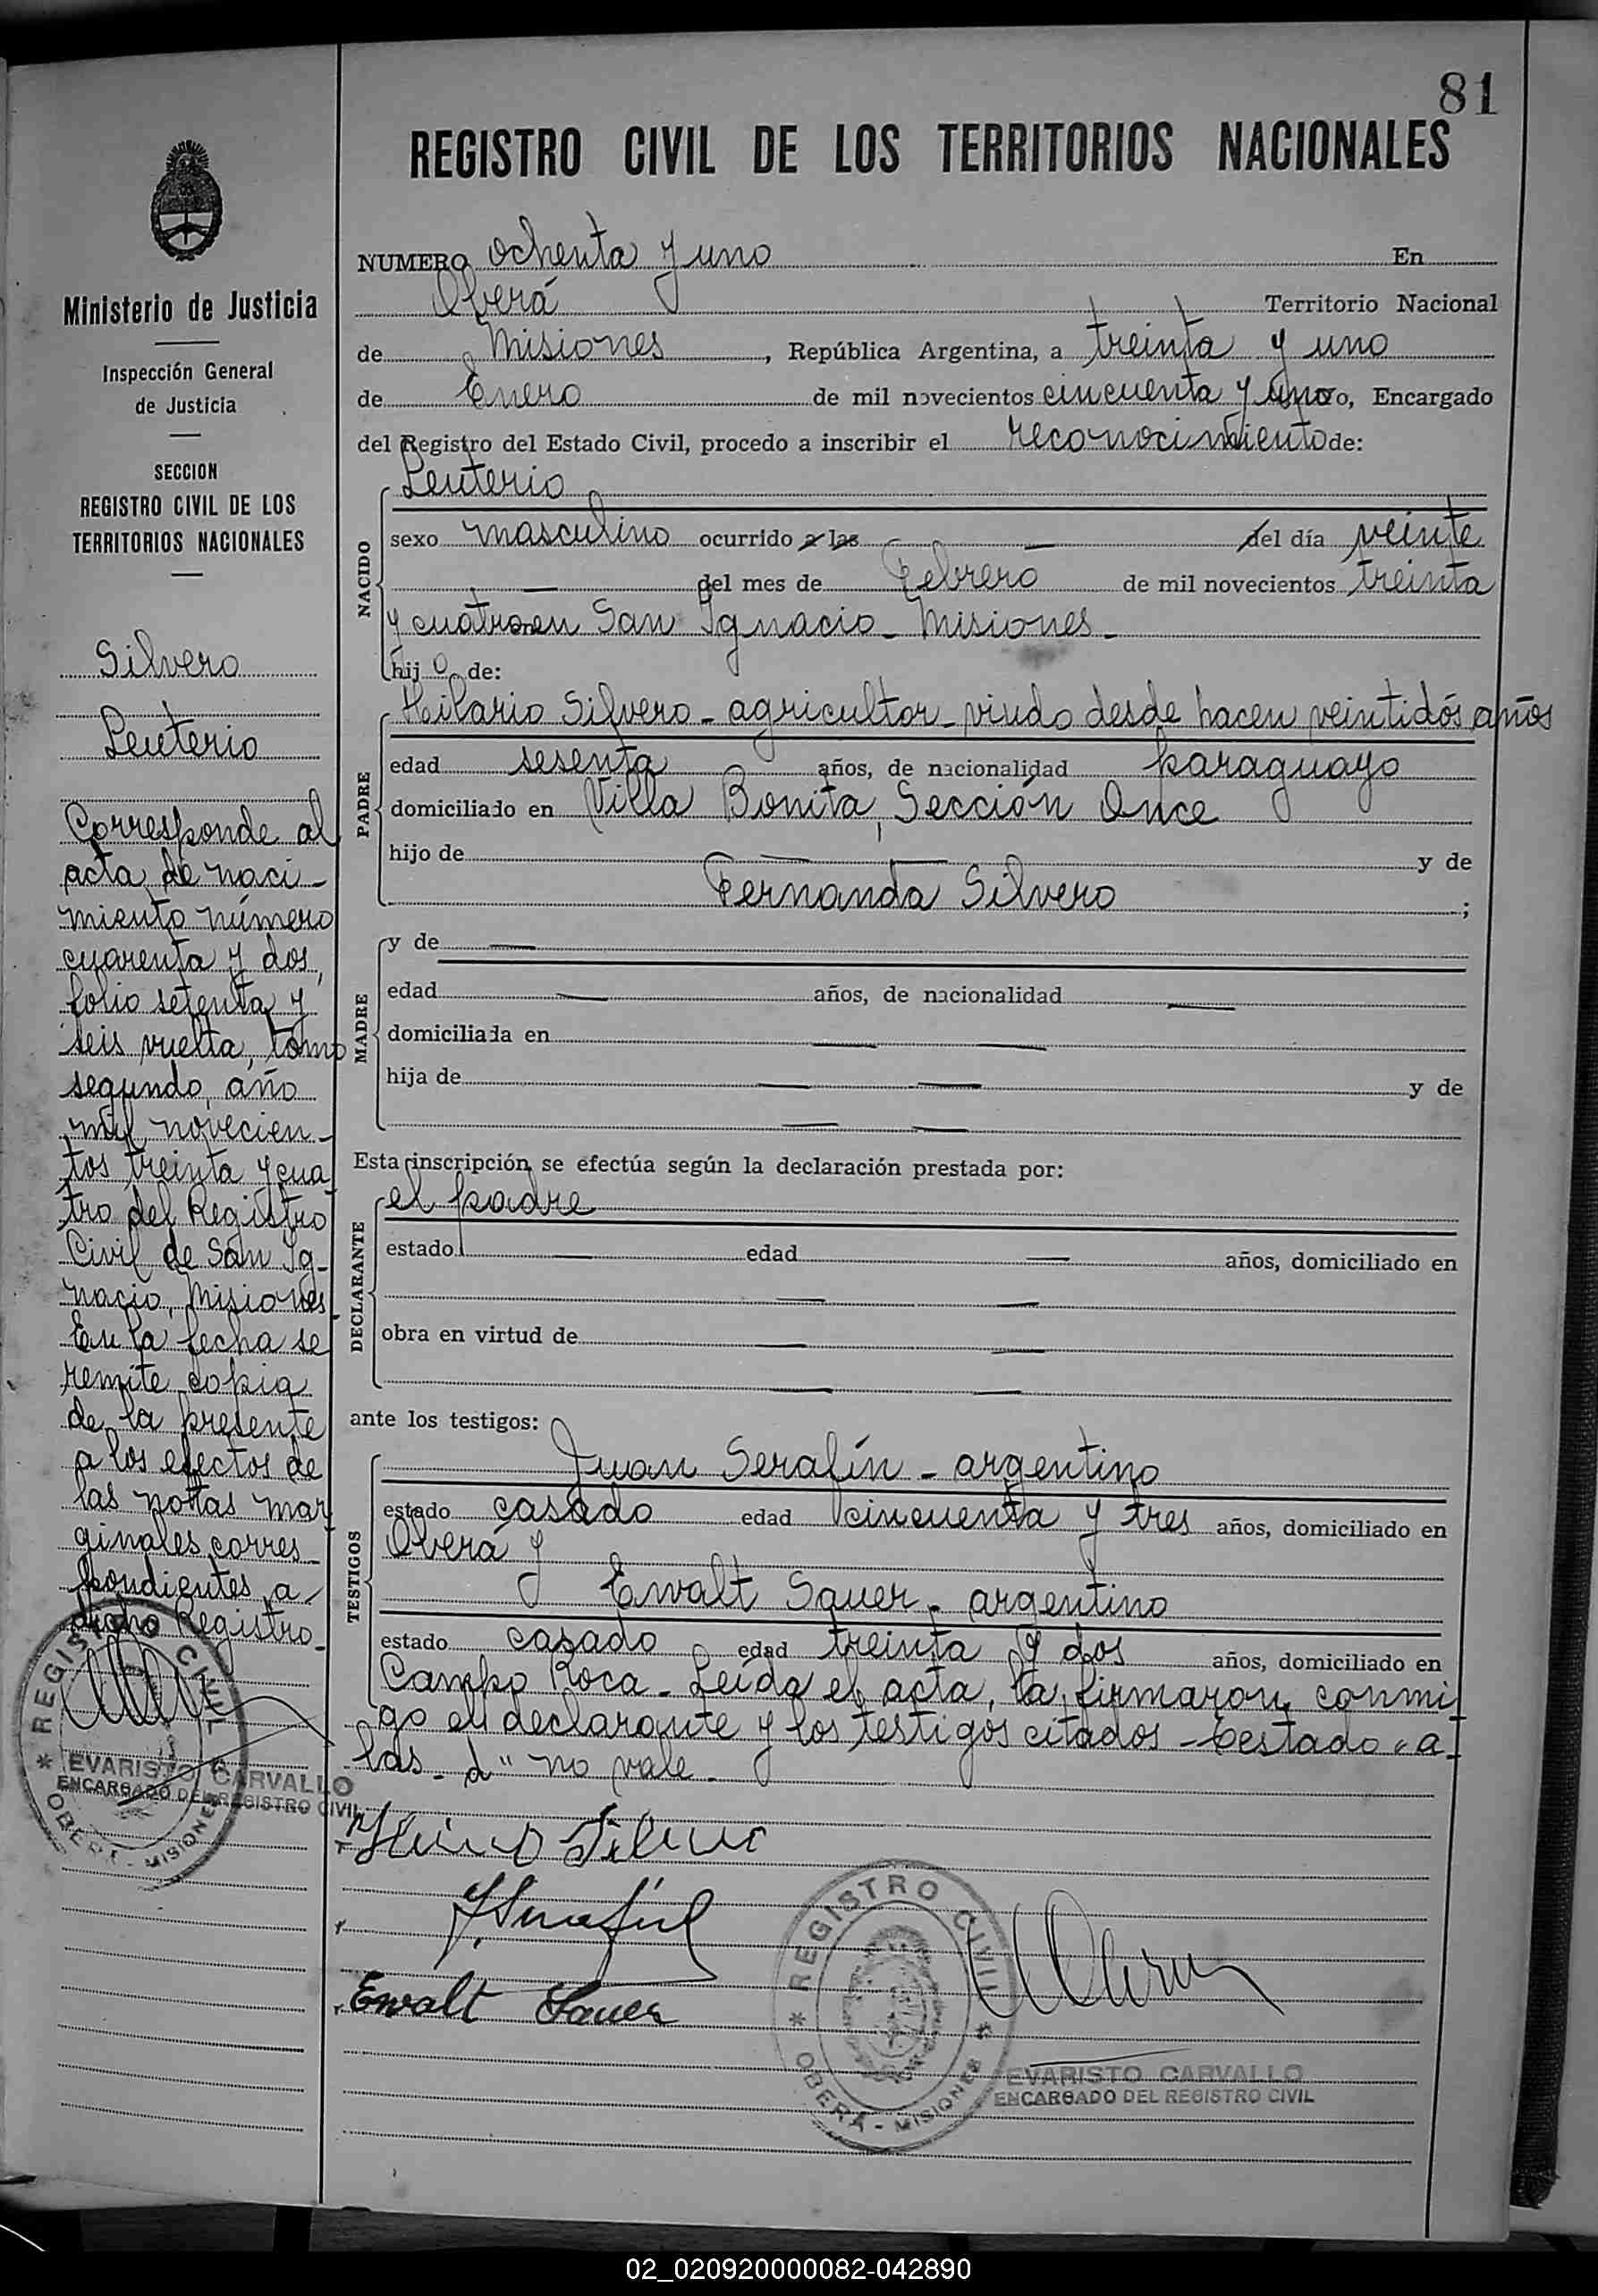 81
REGISTRO CIVIL DE LOS TERRITORIOS NACIONALES
Ministerio de Justicia
Inspección General
de Justicia
SECCION
REGISTRO CIVIL DE LOS
TERRITORIOS NACIONALES
Silvero
Leuterio
Corresponde al
acta de naci-
miento número
cuarenta y dos,
folio setenta y
seis vuelta, tomo
segundo, año
mil novecien-
tos treinta y cua
tro del Registro
Civil de San Ig-
nacio, Misiones.
En la fecha se
remite copia
de la presente
a los efectos de
las nottas mar
ginales corres-
pondientes a
dicho Registro.
REGISTRO CIVIL
OBERA - MISIONES
EVARISTO CARVALLO
ENCARGADO DEL REGISTRO CIVIL
NUMERO ochenta y uno En
Oberá Territorio Nacional
de Misiones, República Argentina, a treinta y uno
de Enero de mil novecientos cincuenta y uno, Encargado
del Registro del Estado Civil, procedo a inscribir el reconocimiento de:
NACIDO
Leuterio
sexo masculino ocurrido a las — del día veinte
— del mes de Febrero de mil novecientos treinta
y cuatro en San Ignacio - Misiones -
hijo de:
PADRE
Hilario Silvero - agricultor - viudo desde hacen veintidós años
edad sesenta años, de nacionalidad paraguayo
domiciliado en Villa Bonita, Sección Once
hijo de — — y de
Fernanda Silvero ;
MADRE
y de —
edad — años, de nacionalidad —
domiciliada en — —
hija de — — y de
— —
Esta inscripción se efectúa según la declaración prestada por:
DECLARANTE
el padre
estado — edad — años, domiciliado en
— —
obra en virtud de — —
— —
ante los testigos:
TESTIGOS
Juan Serafín - argentino
estado casado edad cincuenta y tres años, domiciliado en
Oberá y
Ewalt Sauer - argentino
estado casado edad treinta y dos años, domiciliado en
Campo Roca - Leída el acta, la firmaron conmi
go el declarante y los testigos citados - Testado "a-
las - d" no vale -
Ewalt Sauer
REGISTRO CIVIL
OBERA - MISIONES
EVARISTO CARVALLO
ENCARGADO DEL REGISTRO CIVIL
02_020920000082-042890